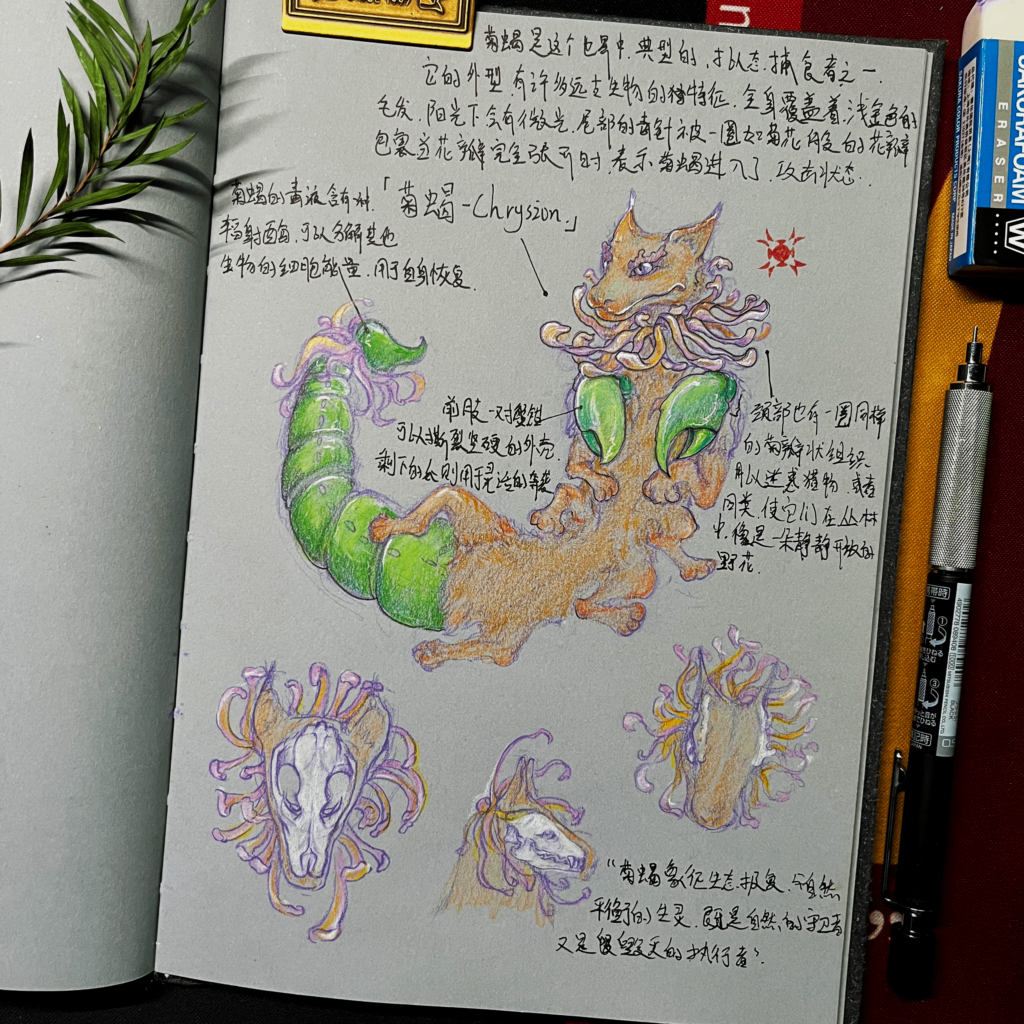 菊蝎是这个世界中,典型的,拟态,捕食者之一.
它的外型有许多远古生物的独特征,全身覆盖着浅金色的
毛发,阳光下会有微光,尾部的毒针被一圈如菊花般的花瓣
包裹,当花瓣完全张开时,表示菊蝎进入了,攻击状态.
菊蝎的毒液含有
辐射酶,可以分解其他
生物的细胞能量,用于自身恢复.
「菊蝎-Chrysion」
前肢一对螯钳
可以撕裂坚硬的外壳.
剩下的 则用于灵活的
颈部也有一圈同样
的菊瓣状组织
用以迷惑猎物,或者
同类,使它们在丛林
中,像是一朵静静开放的
野花.
"菊蝎象征生态报复,与自然
平衡的生灵,既是自然的守卫者
又是 毁灭的执行者".
SAKURA FOAM
ERASER
SAKURA COLOR PRODUCTS CORP.
W